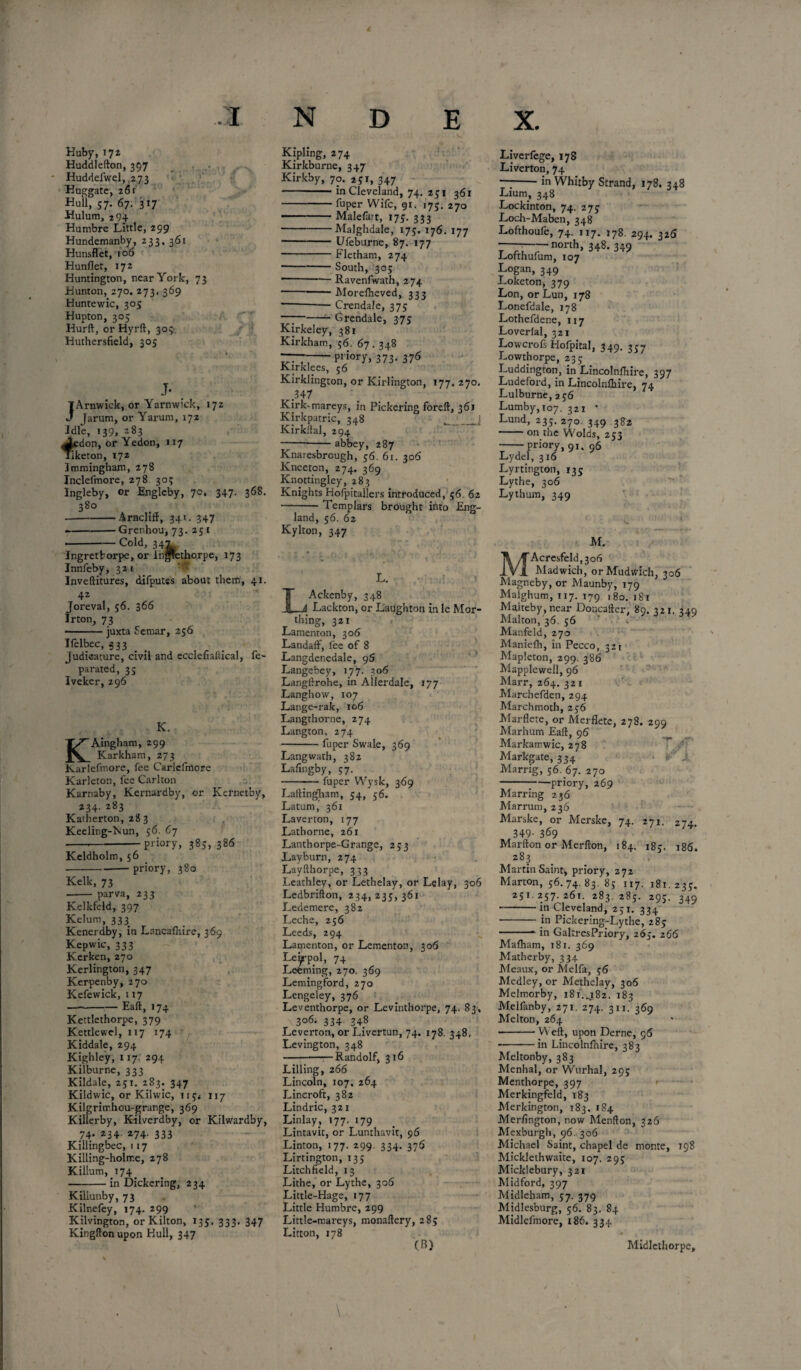 .I N D E X.
Huby, 172
Huddleſton, 397
Huddeſwel, 273
Huggate, 261
Hull, 57. 67. 317
Hulum, 294
Humbre Little, 299
Hundemanby, 233. 361
Hunsflet, 106
Hunſlet, 172
Huntington, near York, 73
Hunton, 270. 273. 369
Huntewic, 305
Hupton, 305
Hurſt, or Hyrſt, 305
Huthersfield, 305
J.
JArnwick, or Yarnwick, 172
Jarum, or Yarum, 172
Idle, 139, 283
Jedon, or Yedon, 117
Iiketon, 172
Immingham, 278
Incleſmore, 278. 305
Ingleby, or Engleby, 70. 347. 368.
380
——— Arncliff, 341. 347
——— Grenhou, 73. 251
——— Cold, 347
Ingrethorpe, or Inglethorpe, 173
Innſeby, 321
Inveſtitures, diſputes about them, 41.
42
Joreval, 56. 366
Irton, 73
——— juxta Semar, 256
Iſelbec, 333
Judicature, civil and eccleſiaſtical, ſe-
parated, 35
Iveker, 296
K.
KAingham, 299
Karkham, 273
Karleſmore, ſee Carleſmore
Karleton, ſee Carlton
Karnaby, Kernardby, or Kernetby,
234. 283
Katherton, 283
Keeling-Nun, 56. 67
——— priory, 385, 386
Keldholm, 56
——— priory, 380
Kelk, 73
—— parva, 233
Kelkfeld, 397
Kelum, 333
Kenerdby, in Lancaſhire, 369
Kepwic, 333
Kerken, 270
Kerlington, 347
Kerpenby, 270
Keſewick, 117
——— Eaſt, 174
Kettlethorpe, 379
Kettlewel, 117 174
Kiddale, 294
Kighley, 117. 294
Kilburne, 333
Kildale, 251. 283. 347
Kildwic, or Kilwic, 115. 117
Kilgrimhou-grange, 369
Killerby, Kilverdby, or Kilwardby,
74. 234. 274. 333
Killingbec, 117
Killing-holme, 278
Killum, 174
——— in Dickering, 234
Killunby, 73
Kilneſey, 174. 299
Kilvington, or Kilton, 135. 333. 347
Kingſton upon Hull, 347
Kipling, 274
Kirkburne, 347
Kirkby, 70. 251, 347
——— in Cleveland, 74. 251 361
——— ſuper Wiſc, 91. 175. 270
——— Malefart, 175. 333
——— Malghdale, 175. 176. 177
——— Uſeburne, 87. 177
——— Fletham, 274
——— South, 305
——— Ravenſwath, 274
——— Moreſheved, 333
——— Crendale, 375
——— Grendale, 375
Kirkeley, 381
Kirkham, 56. 67. 348
——— priory, 373. 376
Kirklees, 56
Kirklington, or Kirlington, 177. 270.
347
Kirk-mareys, in Pickering foreſt, 361
Kirkpatric, 348
Kirkſtal, 294
——— abbey, 287
Knaresbrough, 56. 61. 306
Kneeton, 274. 369
Knottingley, 283
Knights Hoſpitallers introduced, 56. 62
——— Templars brought into Eng-
land, 56. 62
Kylton, 347
L.
LAckenby, 348
Lackton, or Laughton in le Mor-
thing, 321
Lamenton, 306
Landaff, ſee of 8
Langdenedale, 96
Langebey, 177. 206
Langſtrohe, in Allerdale, 177
Langhow, 107
Lange-rak, 106
Langthorne, 274
Langton, 274
——— ſuper Swale, 369
Langwath, 382
Laſingby, 57.
——— ſuper Wysk, 369
Laſtingham, 54, 56.
Latum, 361
Laverton, 177
Lathorne, 261
Lanthorpe-Grange, 253
Layburn, 274
Layſthorpe, 333
Leathley, or Lethelay, or Lelay, 306
Ledbriſton, 234, 235, 361
Ledemere, 382
Leche, 256
Leeds, 294
Lamenton, or Lementon, 306
Leirpol, 74
Leeming, 270. 369
Lemingford, 270
Lengeley, 376
Leventhorpe, or Levinthorpe, 74. 83.
306. 334 348
Leverton, or Livertun, 74. 178. 348.
Levington, 348
——— Randolf, 316
Lilling, 266
Lincoln, 107. 264
Lincroft, 382
Lindric, 321
Linlay, 177. 179
Lintavit, or Lunthavit, 96
Linton, 177. 299. 334. 376
Lirtington, 135
Litchfield, 13
Lithe, or Lythe, 306
Little-Hage, 177
Little Humbre, 299
Little-mareys, monaſtery, 285
Litton, 178
(B)
Liverſege, 178
Liverton, 74
——— in Whitby Strand, 178. 348
Lium, 348
Lockinton, 74. 275
Loch-Maben, 348
Lofthouſe, 74. 117. 178. 294. 326
——— north, 348. 349
Lofthuſum, 107
Logan, 349
Loketon, 379
Lon, or Lun, 178
Loneſdale, 178
Lotheſdene, 117
Loverſal, 321
Lowcroſs Hoſpital, 349. 357
Lowthorpe, 235
Luddington, in Lincolnſhire, 397
Ludeford, in Lincolnſhire, 74
Lulburne, 256
Lumby, 107. 321
Lund, 235. 270. 349 382
—— on the Wolds, 253
—— priory, 91. 96
Lydel, 316
Lyrtington, 135
Lythe, 306
Lythum, 349
M.
MAcresfeld, 306
Madwich, or Mudwich, 306
Magneby, or Maunby, 179
Malghum, 117. 179 180. 181
Malteby, near Doncaſter, 89. 321. 349
Malton, 36. 56
Manfeld, 270
Manieſh, in Pecco, 321
Mapleton, 299. 386
Mapplewell, 96
Marr, 264. 321
Marcheſden, 294
Marchmoth, 256
Marflete, or Merflete, 278. 299
Marhum Eaſt, 96
Markamwic, 278
Markgate, 334
Marrig, 56. 67. 270
——— priory, 269
Marring 236
Marrum, 236
Marske, or Merske, 74. 271. 274.
349. 369
Marſton or Merſton, 184. 185. 186.
283
Martin Saint, priory, 272
Marton, 56. 74. 83 85 117. 181. 235.
251. 257. 261. 283. 285. 295. 349
——— in Cleveland, 251. 334
——— in Pickering-Lythe, 285
——— in Galtres Priory, 265. 266
Maſham, 181. 369
Matherby, 334
Meaux, or Melſa, 56
Medley, or Methelay, 306
Melmorby, 181. 182. 183
Melſanby, 271. 274. 311. 369
Melton, 264
——— Weſt, upon Derne, 96
——— in Lincolnſhire, 383
Meltonby, 383
Menhal, or Wurhal, 295
Menthorpe, 397
Merkingfeld, 183
Merkington, 183. 184
Merſington, now Menſton, 326
Mexburgh, 96. 306
Michael Saint, chapel de monte, 198
Micklethwaite, 107. 295
Micklebury, 321
Midford, 397
Midleham, 57. 379
Midlesburg, 56. 83. 84
Midleſmore, 186. 334
Midlethorpe,